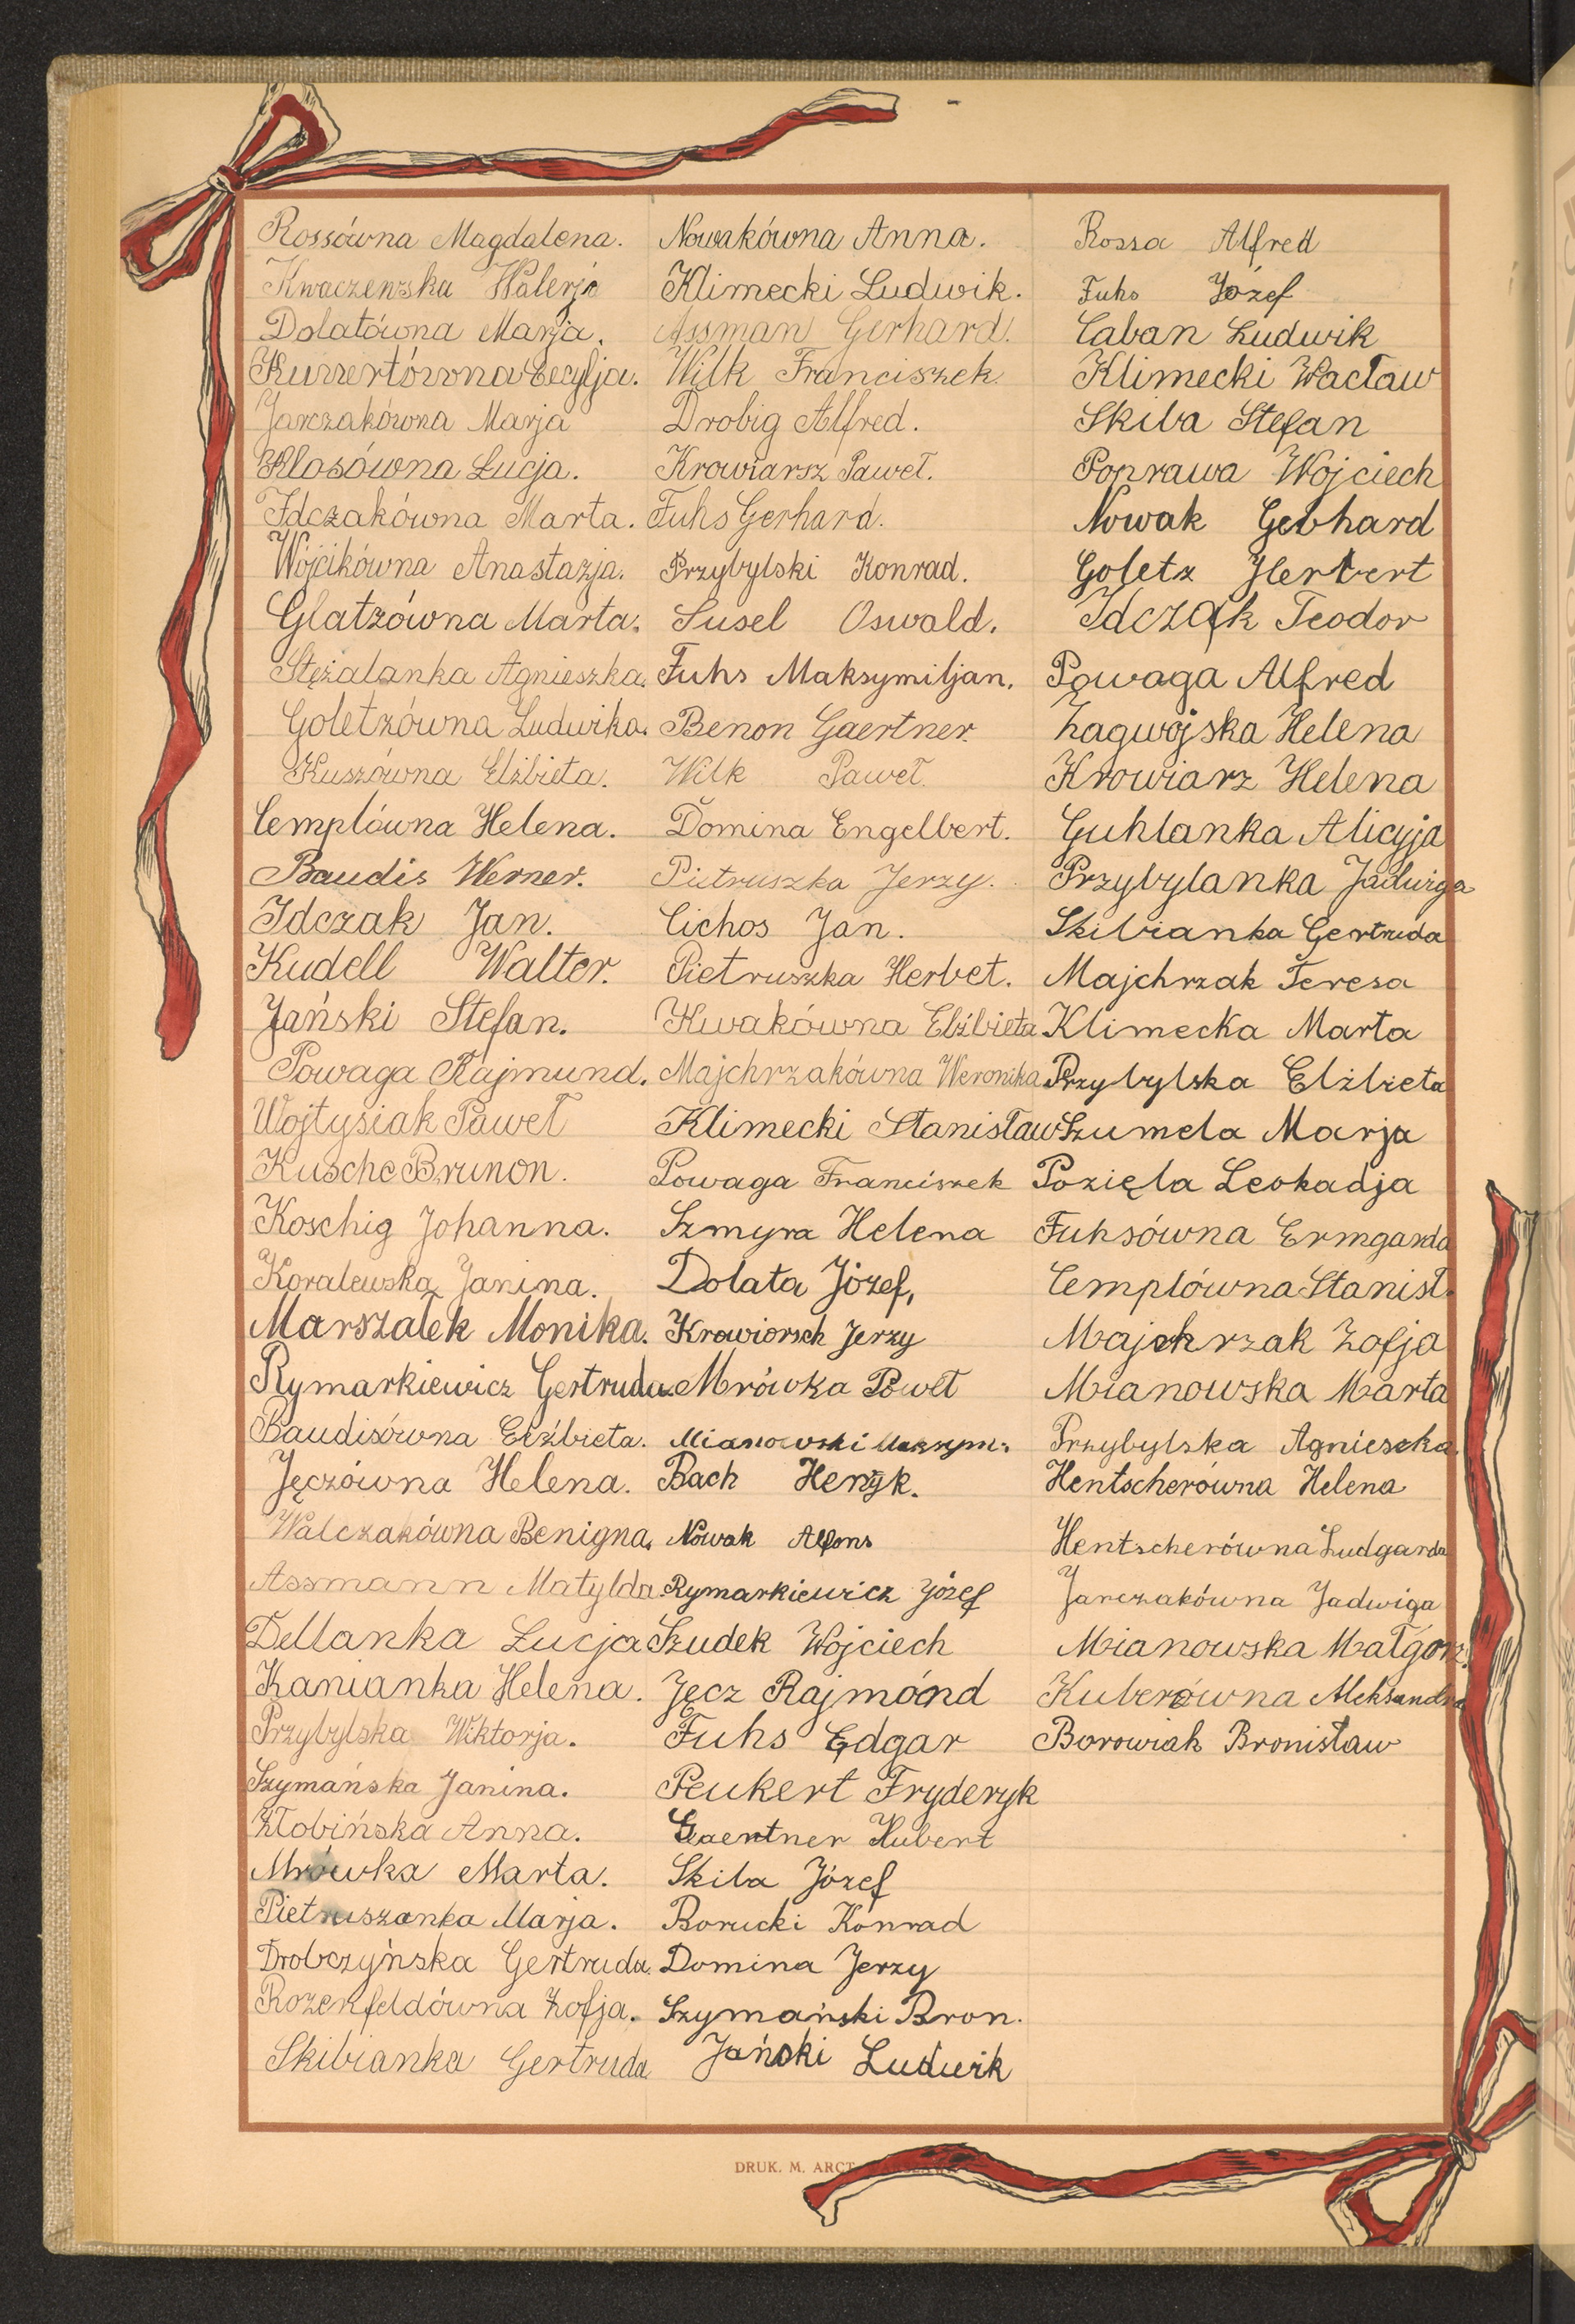 Rossówna Magdalena.
Kwaczewska Walerja
Dolatówna Marja.
Kurzertówna Cecylja.
Jarczakówna Marja
Kłosówna Łucja.
Idczakówna Marta.
Wójcikówna Anastazja.
Glatzówna Marta.
Stężalanka Agnieszka.
Goletzówna Ludwika.
Kuszówna Elżbieta.
Cemplówna Helena.
Baudis Werner.
Idczak Jan.
Kudell Walter.
Jański Stefan.
Powaga Rajmund.
Wojtysiak Paweł
Kusche Brunon.
Koschig Johanna.
Koralewska Janina.
Marszałek Monika.
Rymarkiewicz Gertruda
Baudisówna Elżbieta.
Jęczówna Helena.
Walczakówna Benigna.
Assmann Matylda
Dellanka Łucja
Kanianka Helena.
Przybylska Wiktorja.
Szymańska Janina.
Złobińska Anna.
Mrówka Marta.
Pietruszanka Marja.
Drobczyńska Gertruda.
Rozenfeldówna Zofja.
Skibianka Gertruda
Nowakówna Anna.
Klimecki Ludwik.
Assman Gerhard.
Wilk Franciszek.
Drobig Alfred.
Krowiarsz Paweł.
Fuhs Gerhard.
Przybylski Konrad.
Susel Oswald.
Fuhs Maksymiljan.
Benon Gaertner.
Wilk Paweł.
Domina Engelbert.
Pietruszka Jerzy.
Cichos Jan.
Pietruszka Herbet.
Kwakówna Elżbieta
Majchrzakówna Weronika
Klimecki Stanisław
Powaga Franciszek
Szmyra Helena
Dolata Józef,
Krowiorsch Jerzy
Mrówka Poweł
Mianowski Maksym.
Bach Henryk.
Nowak Alfons
Rymarkiewicz Józef
Szudek Wojciech
Jęcz Rajmónd
Fuhs Edgar
Peukert Fryderyk
Gaertner Hubert
Skiba Józef
Borucki Konrad
Domina Jerzy
Szymański Bron.
Jański Ludwik
Rossa Alfred
Fuhs Józef
Caban Ludwik
Klimecki Wacław
Skiba Stefan
Poprawa Wojciech
Nowak Gebhard
Goletz Herbert
Idczak Teodor
Powaga Alfred
Zagwojska Helena
Krowiarz Helena
Guhlanka Alicyja
Przybylanka Jadwiga
Skibianka Gertruda
Majchrzak Teresa
Klimecka Marta
Przybylska Elżbieta
Szumela Marja
Pozięla Leokadja
Fuhsówna Ermgarda
Cemplówna Stanisł.
Majchrzak Zofja
Mianowska Marta
Przybylska Agnieszka.
Hentscherówna Helena
Hentscherówna Ludgarda
Jarczakówna Jadwiga
Mianowska Małgorz.
Kuberówna Aleksandra
Borowiak Bronisław
DRUK. M. ARCT